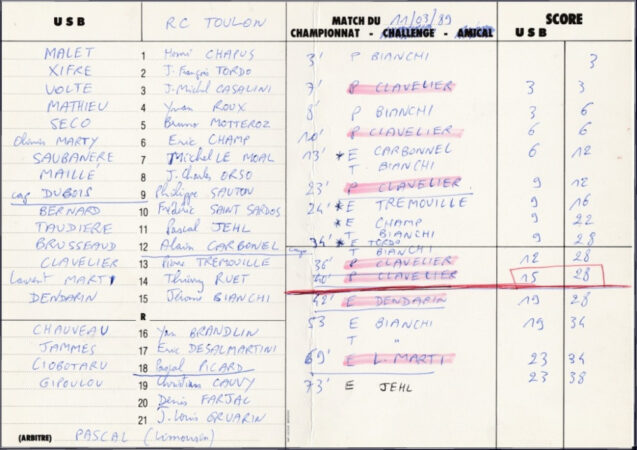 U S B RC TOULON MATCH DU 11/03/89 SCORE
CHAMPIONNAT - CHALLENGE - AMICAL U S B
MALET 1 Henri CHAPUS 3' P BIANCHI 3
XIFRE 2 J. François TORDO
VOLTE 3 J. Michel CASALINI 7' P CLAVELIER 3 3
MATHIEU 4 Yvan ROUX 8' P BIANCHI 3 6
SECO 5 Bruno MOTTEROZ 10' P CLAVELIER 6 6
Olivier MARTY 6 Eric CHAMP 13' * E CARBONNEL 6 12
SAUBANERE 7 Michel LE MOAL T BIANCHI
MAILLÉ 8 J. Charles ORSO 23' P CLAVELIER 9 12
cap DUBOIS 9 Philippe SAUTON 24' * E TREMOUILLE 9 16
BERNARD 10 Frédéric SAINT SARDOS * E CHAMP 9 22
TAUDIERE 11 Pascal JEHL 34' * E TORDO 9 28
BRUSSEAUD 12 Alain CARBONEL T BIANCHI
CLAVELIER 13 Pierre TREMOUILLE 36' P CLAVELIER 12 28
Laurent MARTI 14 Thierry RUET 40' P CLAVELIER 15 28
DENDARIN 15 Jérôme BIANCHI 42' E DENDARIN 19 28
R
CHAUVEAU 16 Yan BRANDLIN 53 E BIANCHI 19 34
JAMMES 17 Eric DESALMARTINI T "
CIOBOTARU 18 Pascal PICARD 69' E L. MARTI 23 34
GIPOULOU 19 Christian CAUVY 73' E JEHL 23 38
20 Denis FARJAC
21 J. Louis GRUARIN
(ARBITRE) PASCAL (Limousin)